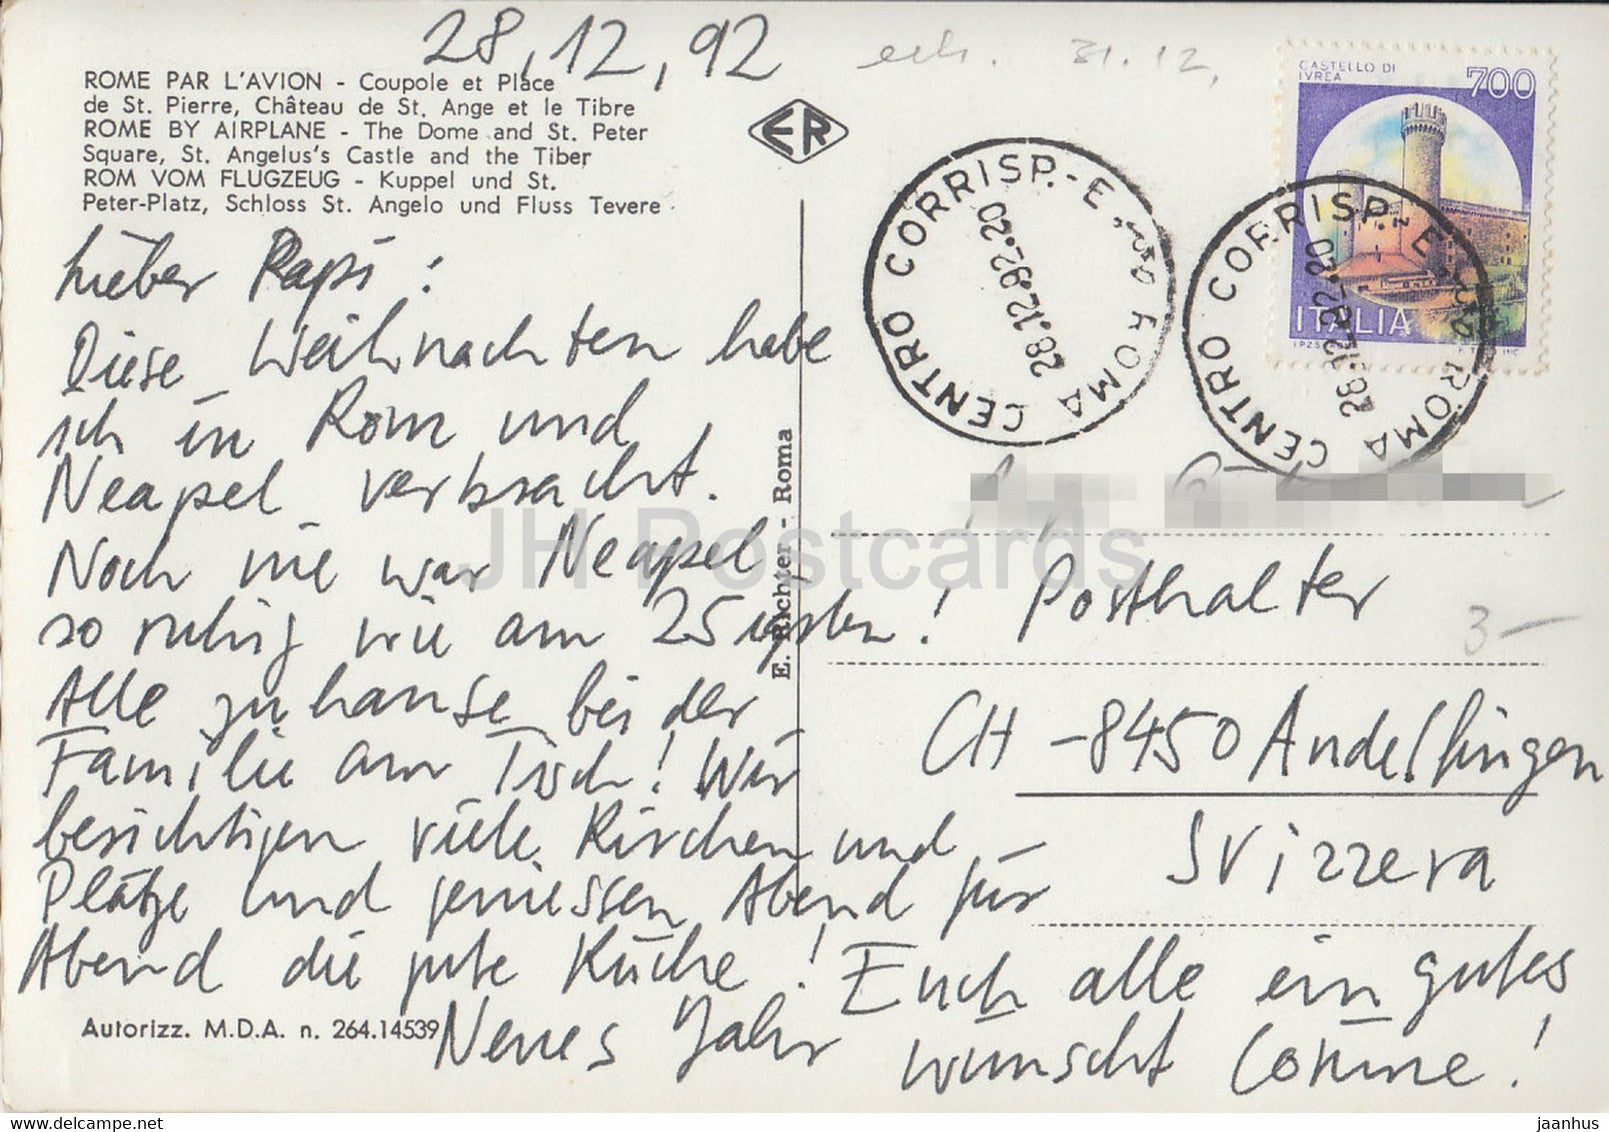 28.12.92
erh. 31.12.
ROME PAR L'AVION - Coupole et Place
de St. Pierre, Château de St. Ange et le Tibre
ROME BY AIRPLANE - The Dome and St. Peter
Square, St. Angelus's Castle and the Tiber
ROM VOM FLUGZEUG - Kuppel und St.
Peter-Platz, Schloss St. Angelo und Fluss Tevere
ER
CASTELLO DI
IVREA
700
ITALIA
CENTRO CORRISP.-E ROMA
28.12.92-20
CENTRO CORRISP.-E ROMA
28.12.92-20
Lieber Papi!
Diese Weihnachten habe
ich in Rom und
Neapel verbracht.
Noch nie war Neapel
so ruhig wie am 25igsten!
Alle zuhause bei der
Familie am Tisch! Wir
besichtigen viele Kirchen und
Plätze und geniessen Abend für
Abend die gute Küche! Euch alle ein gutes
Neues Jahr wünscht Corinne!
E. Richter - Roma
Posthalter
3-
CH-8450 Andelfingen
Svizzera
Autorizz. M.D.A. n. 264.14539
JH Postcards
delcampe.net
jaanhus